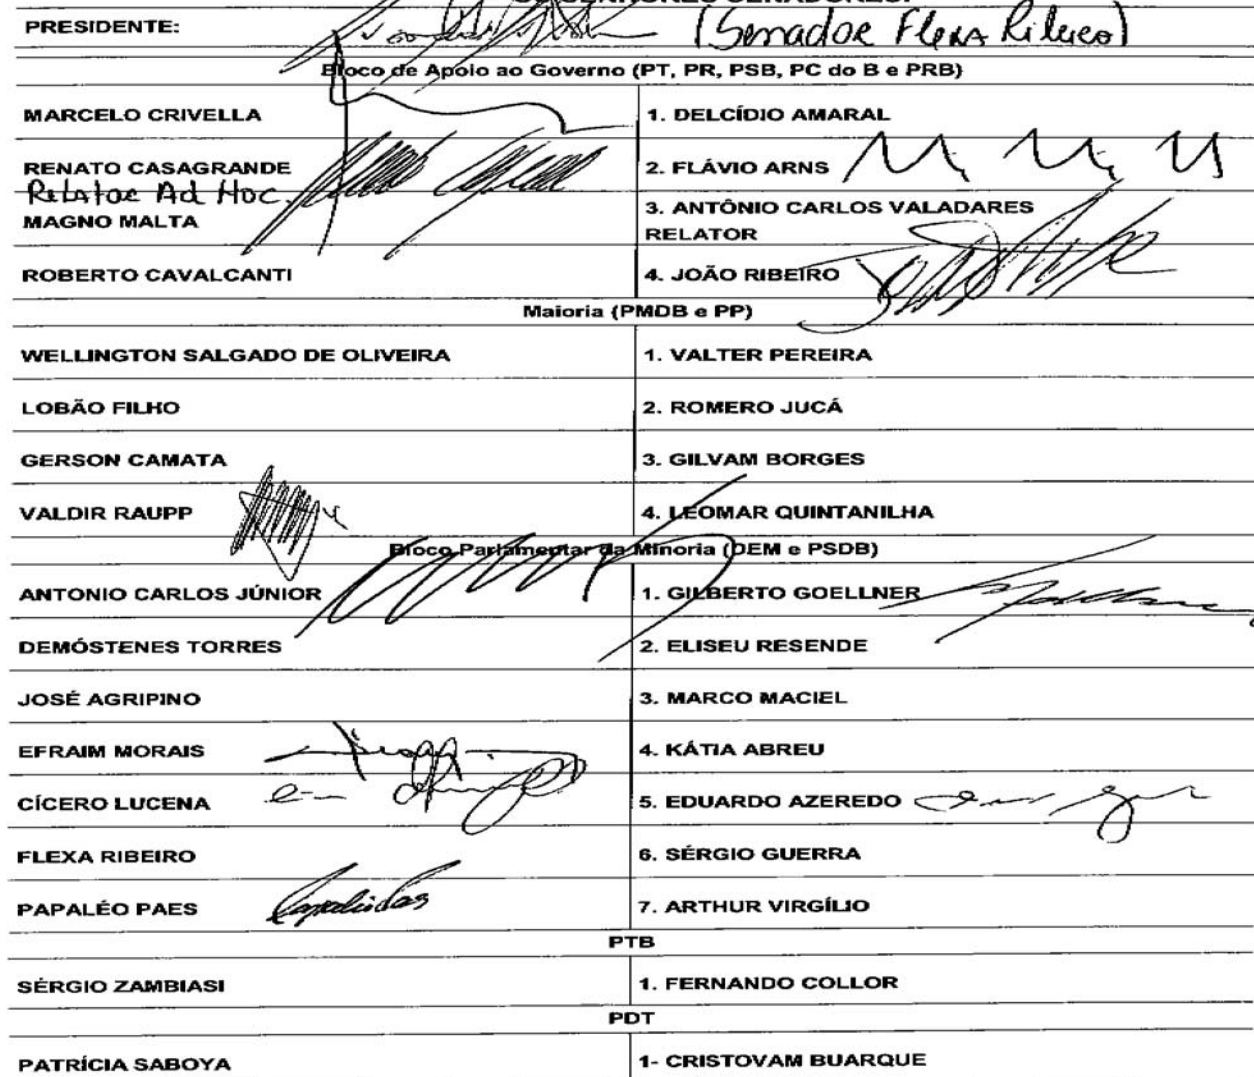 PRESIDENTE: (Senador Flexa Ribeiro)
Bloco de Apoio ao Governo (PT, PR, PSB, PC do B e PRB)
MARCELO CRIVELLA 1. DELCÍDIO AMARAL
RENATO CASAGRANDE 2. FLÁVIO ARNS
Relator Ad Hoc.
MAGNO MALTA 3. ANTÔNIO CARLOS VALADARES
RELATOR
ROBERTO CAVALCANTI 4. JOÃO RIBEIRO
Maioria (PMDB e PP)
WELLINGTON SALGADO DE OLIVEIRA 1. VALTER PEREIRA
LOBÃO FILHO 2. ROMERO JUCÁ
GERSON CAMATA 3. GILVAM BORGES
VALDIR RAUPP 4. LEOMAR QUINTANILHA
Bloco Parlamentar da Minoria (DEM e PSDB)
ANTONIO CARLOS JÚNIOR 1. GILBERTO GOELLNER
DEMÓSTENES TORRES 2. ELISEU RESENDE
JOSÉ AGRIPINO 3. MARCO MACIEL
EFRAIM MORAIS 4. KÁTIA ABREU
CÍCERO LUCENA 5. EDUARDO AZEREDO
FLEXA RIBEIRO 6. SÉRGIO GUERRA
PAPALÉO PAES 7. ARTHUR VIRGÍLIO
PTB
SÉRGIO ZAMBIASI 1. FERNANDO COLLOR
PDT
PATRÍCIA SABOYA 1- CRISTOVAM BUARQUE